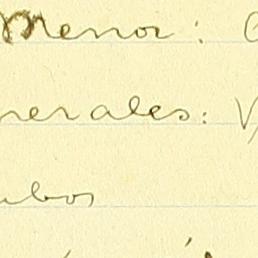 Menor:
nerales: V
ubos